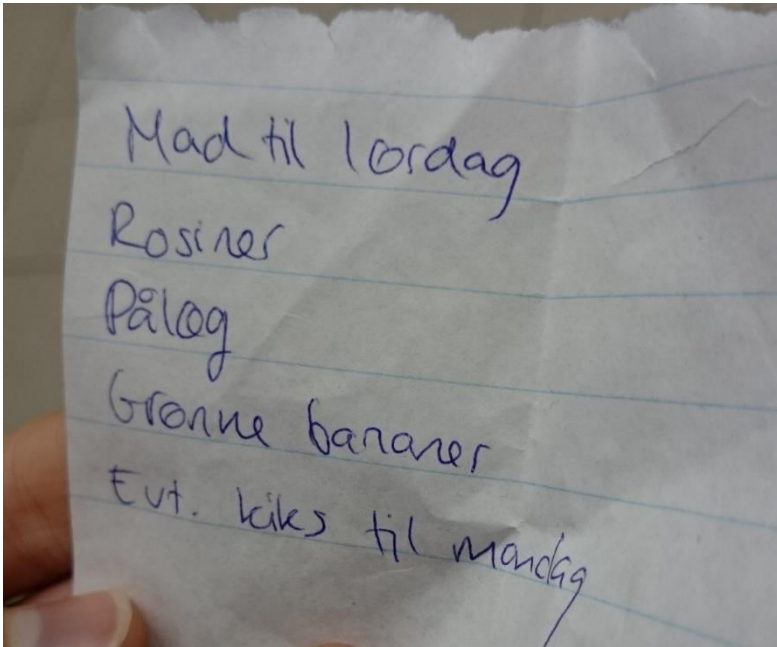 Mad til lørdag
Rosiner
Pålæg
Grønne bananer
Evt. kiks til mandag